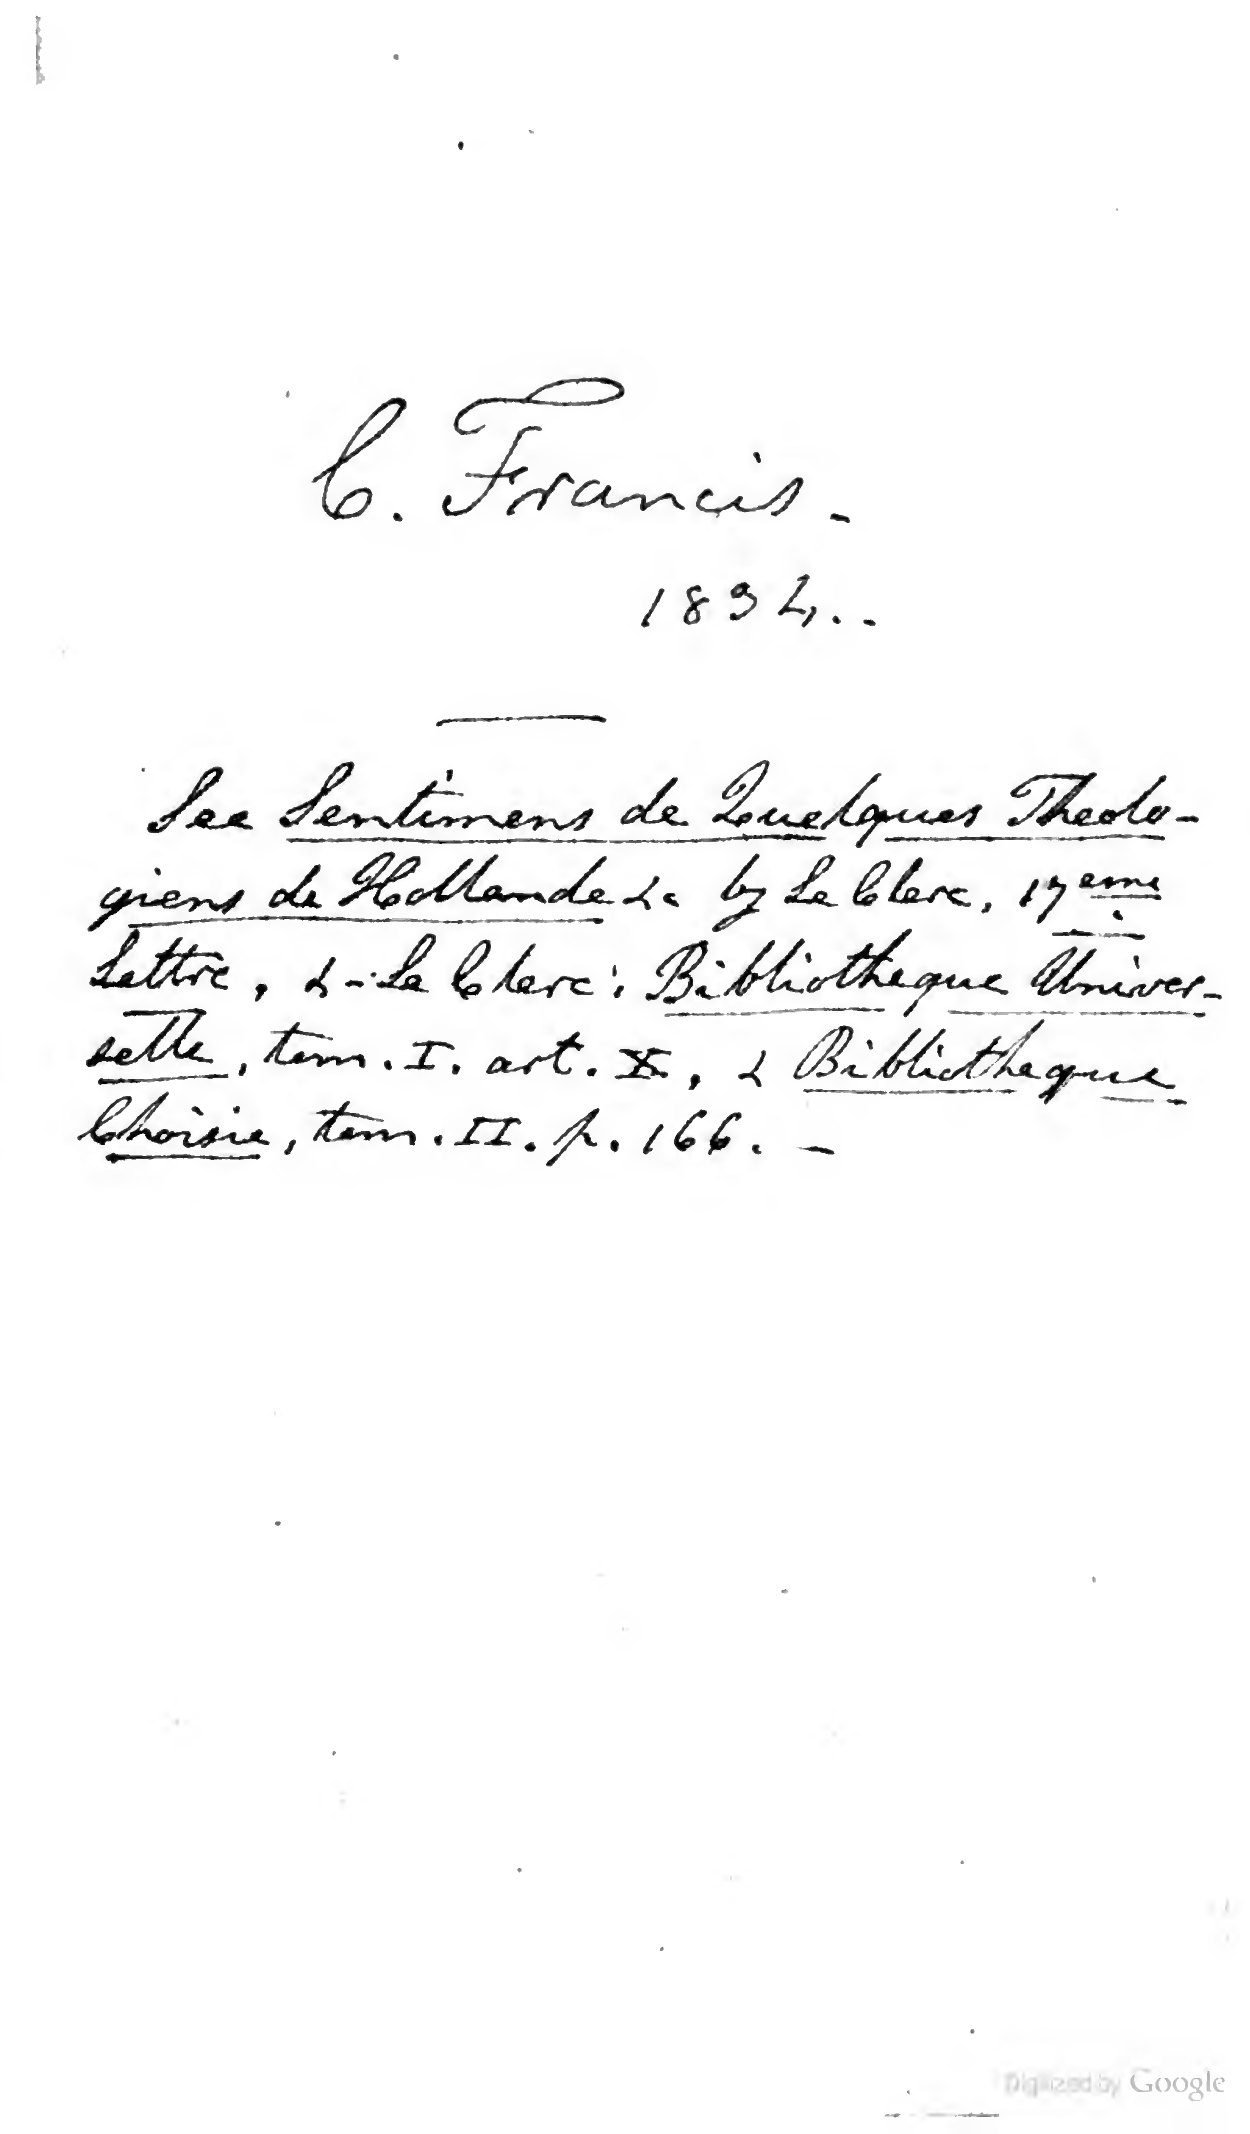 C. Francis. -
1834. . -
See Sentimens de Quelques Theolo-
giens de Hollande &c by Le Clerc, 17eme
Lettre, & - Le Clerc: Bibliotheque Univer-
selle, tom. I. art. X, & Bibliotheque
Choisie, tom. II. p. 166. -
Digitized by Google